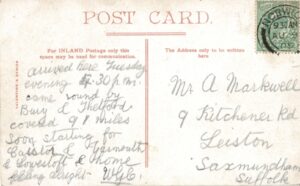 POST CARD.
For INLAND Postage only this
space may be used for communication.
The Address only to be written
here
arrived here Tuesday
evening 7.30 p.m.
came round by
Bury & Thetford
covered 91 miles
Soon starting for
Caistor & Yarmouth
& Lowestoft & home
all being alright
Mr A Markwell
9 Kitchener Rd
Leiston
Saxmundham
Suffolk